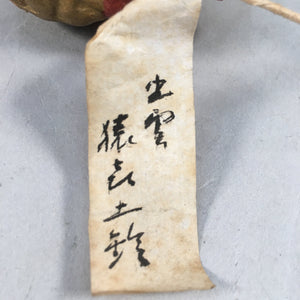 出雲
猿㐂土鈴